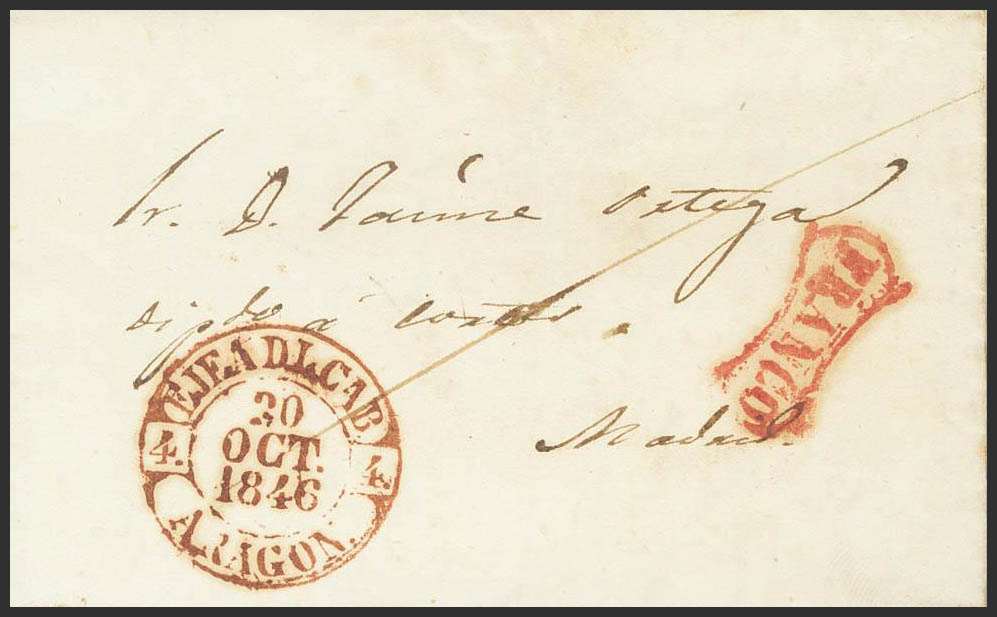 Sr. D. Jaime Ortega
dipdo a cortes.
Madrid.
FRANCO
EJEA DL. CAB.
4. 4.
20
OCT.
1846
ARAGON.